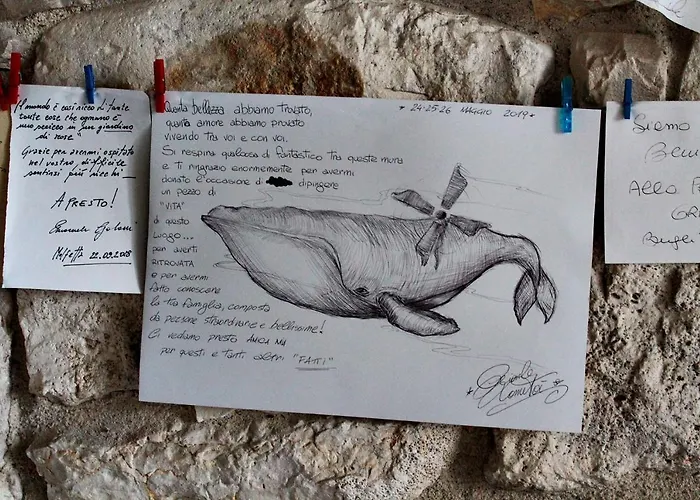 Il mondo è così ricco di tante
tante cose che ognuno è
uno sceicco in un giardino
di rose"
Grazie per avermi ospitato
nel vostro, difficile
sentirsi più ricchi
A PRESTO!
Molfetta 22.09.2018
Quanta bellezza abbiamo trovato,
quanto amore abbiamo provato
vivendo tra voi e con voi.
Si respira qualcosa di fantastico tra queste mura
e ti ringrazio enormemente per avermi
donato l'occasione di dipingere
un pezzo di
"VITA"
di questo
luogo...
per averti
RITROVATA
e per avermi
fatto conoscere
la tua famiglia, composta
da persone straordinarie e bellissime!
Ci vediamo presto
per questi e tanti altri "FATTI"
* 24-25-26 MAGGIO 2019 *
Siamo